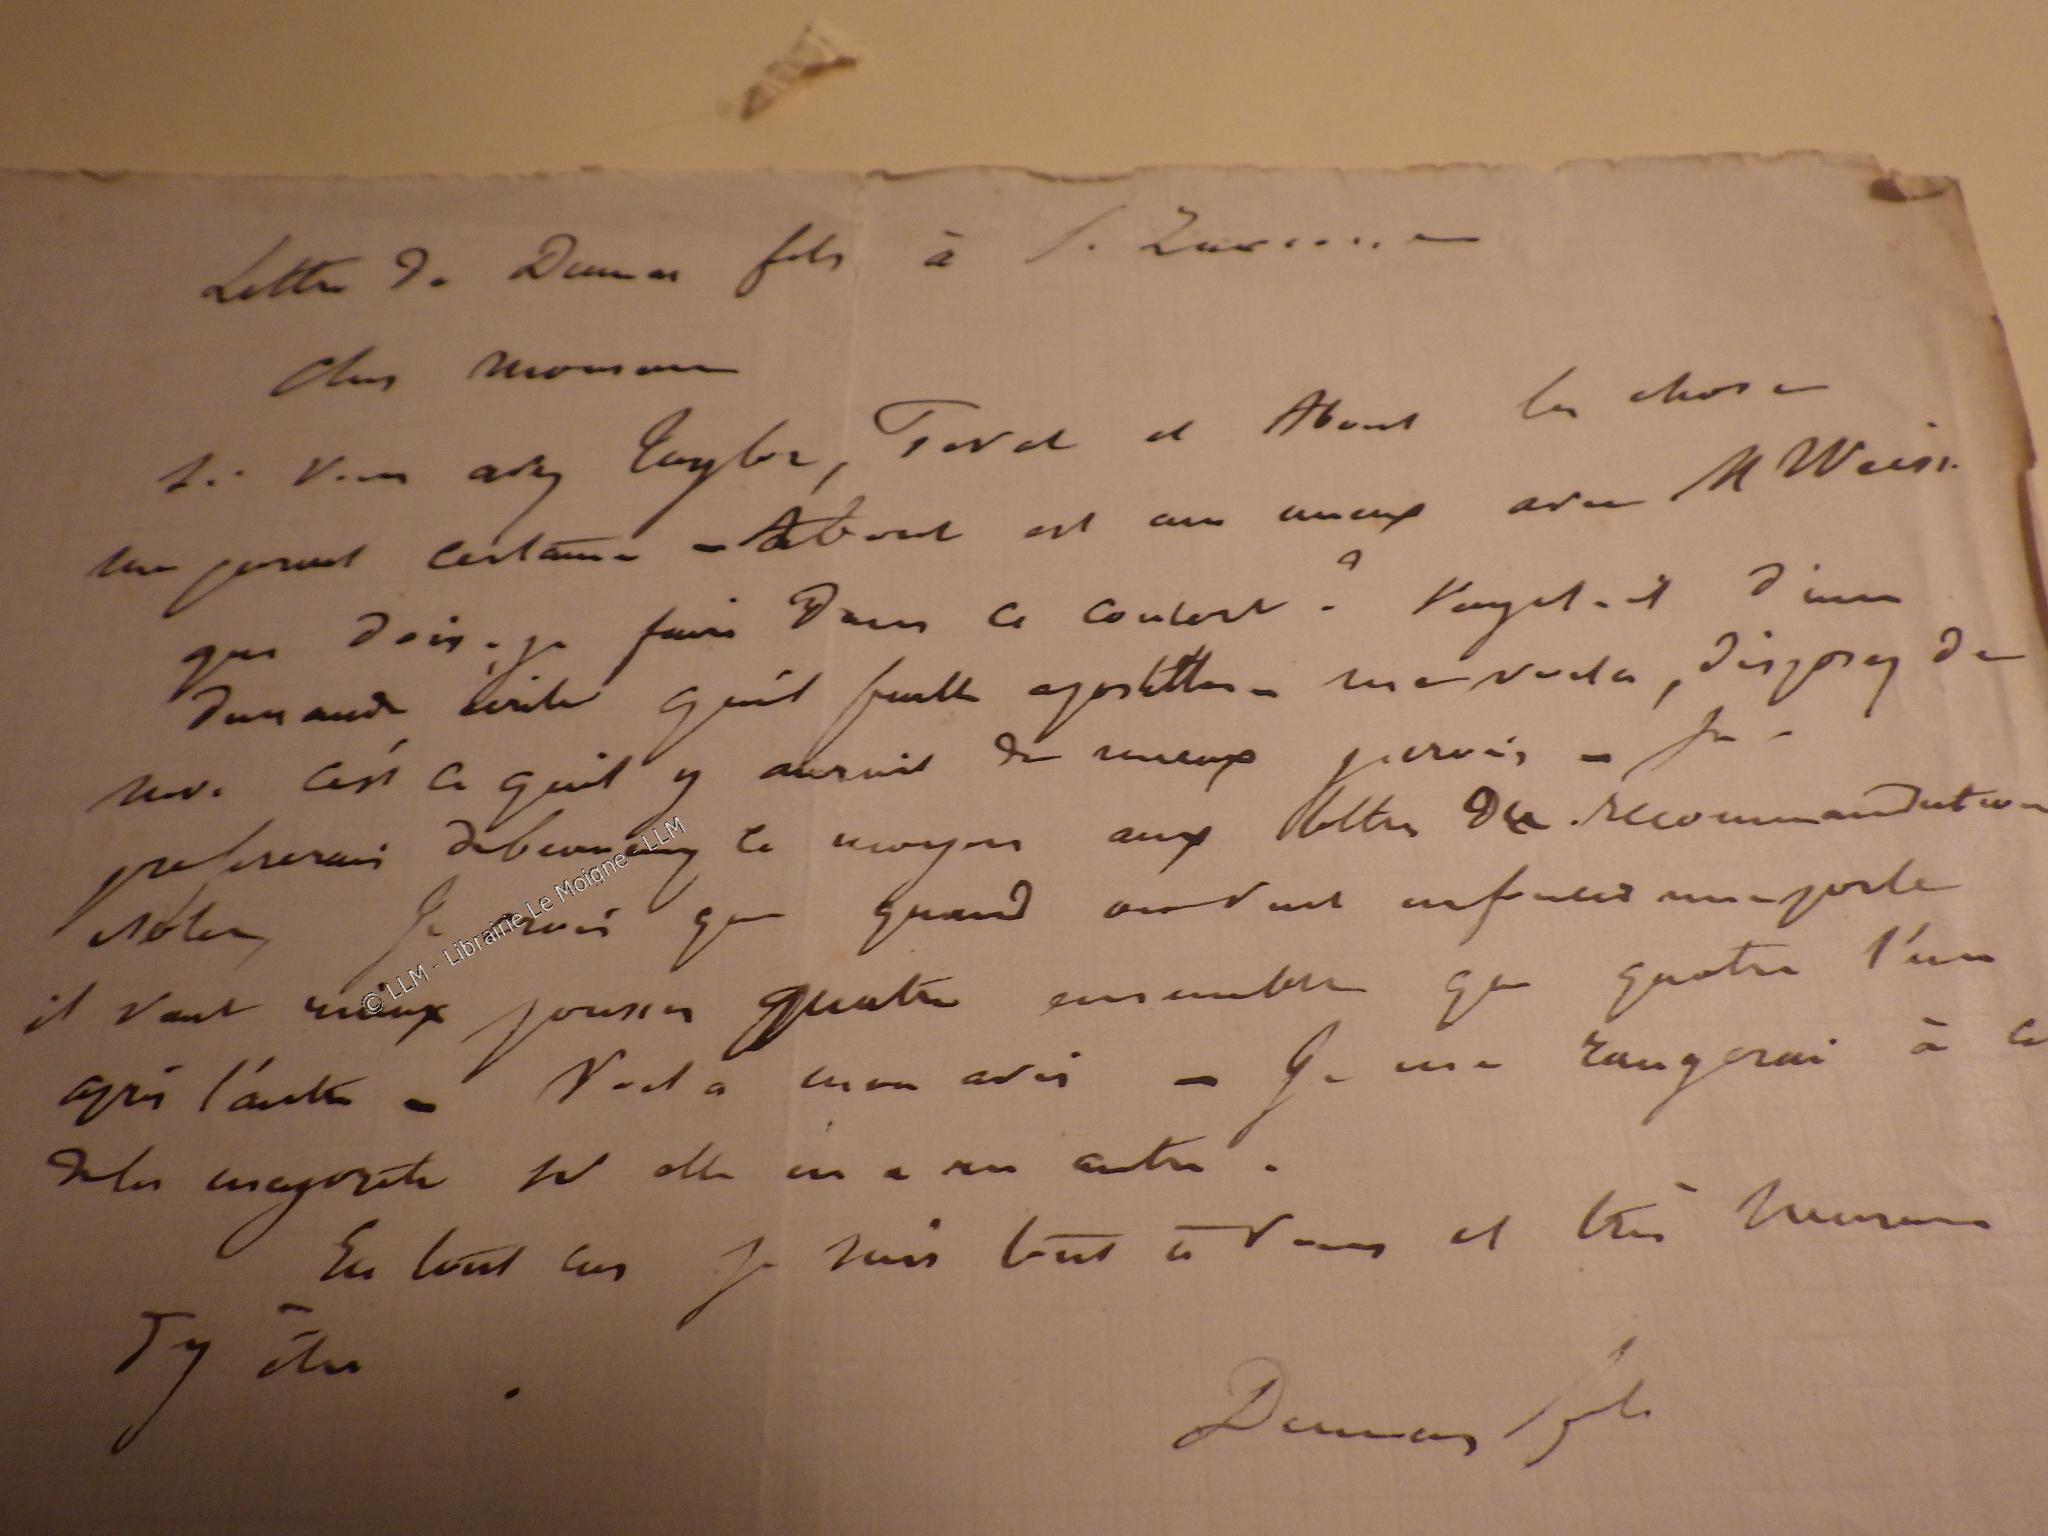 Lettre de Dumas fils à
Cher Monsieur
Si vous avez Taylor, et About la chose
me parait certaine - About est au mieux avec M Weiss.
que dois-je faire dans ce concert ? S'agit-il d'une
demande écrite qu'il faille apostiller - me voila, disposez de
moi c'est ce qu'il y aurait de mieux je crois - Je
prefererais de beaucoup ce moyen aux lettres de recommandation
isolées, Je crois que quand on veut enfoncer une porte
il vaut mieux pousser quatre ensemble que quatre l'un
après l'autre - Voila mon avis - Je me rangerai à ce
de la majorité si elle en a un autre.
En tout cas je suis tout à vous et très heureux
d'y être.
Dumas fils
© LLM - Librairie Le Moigne - LLM